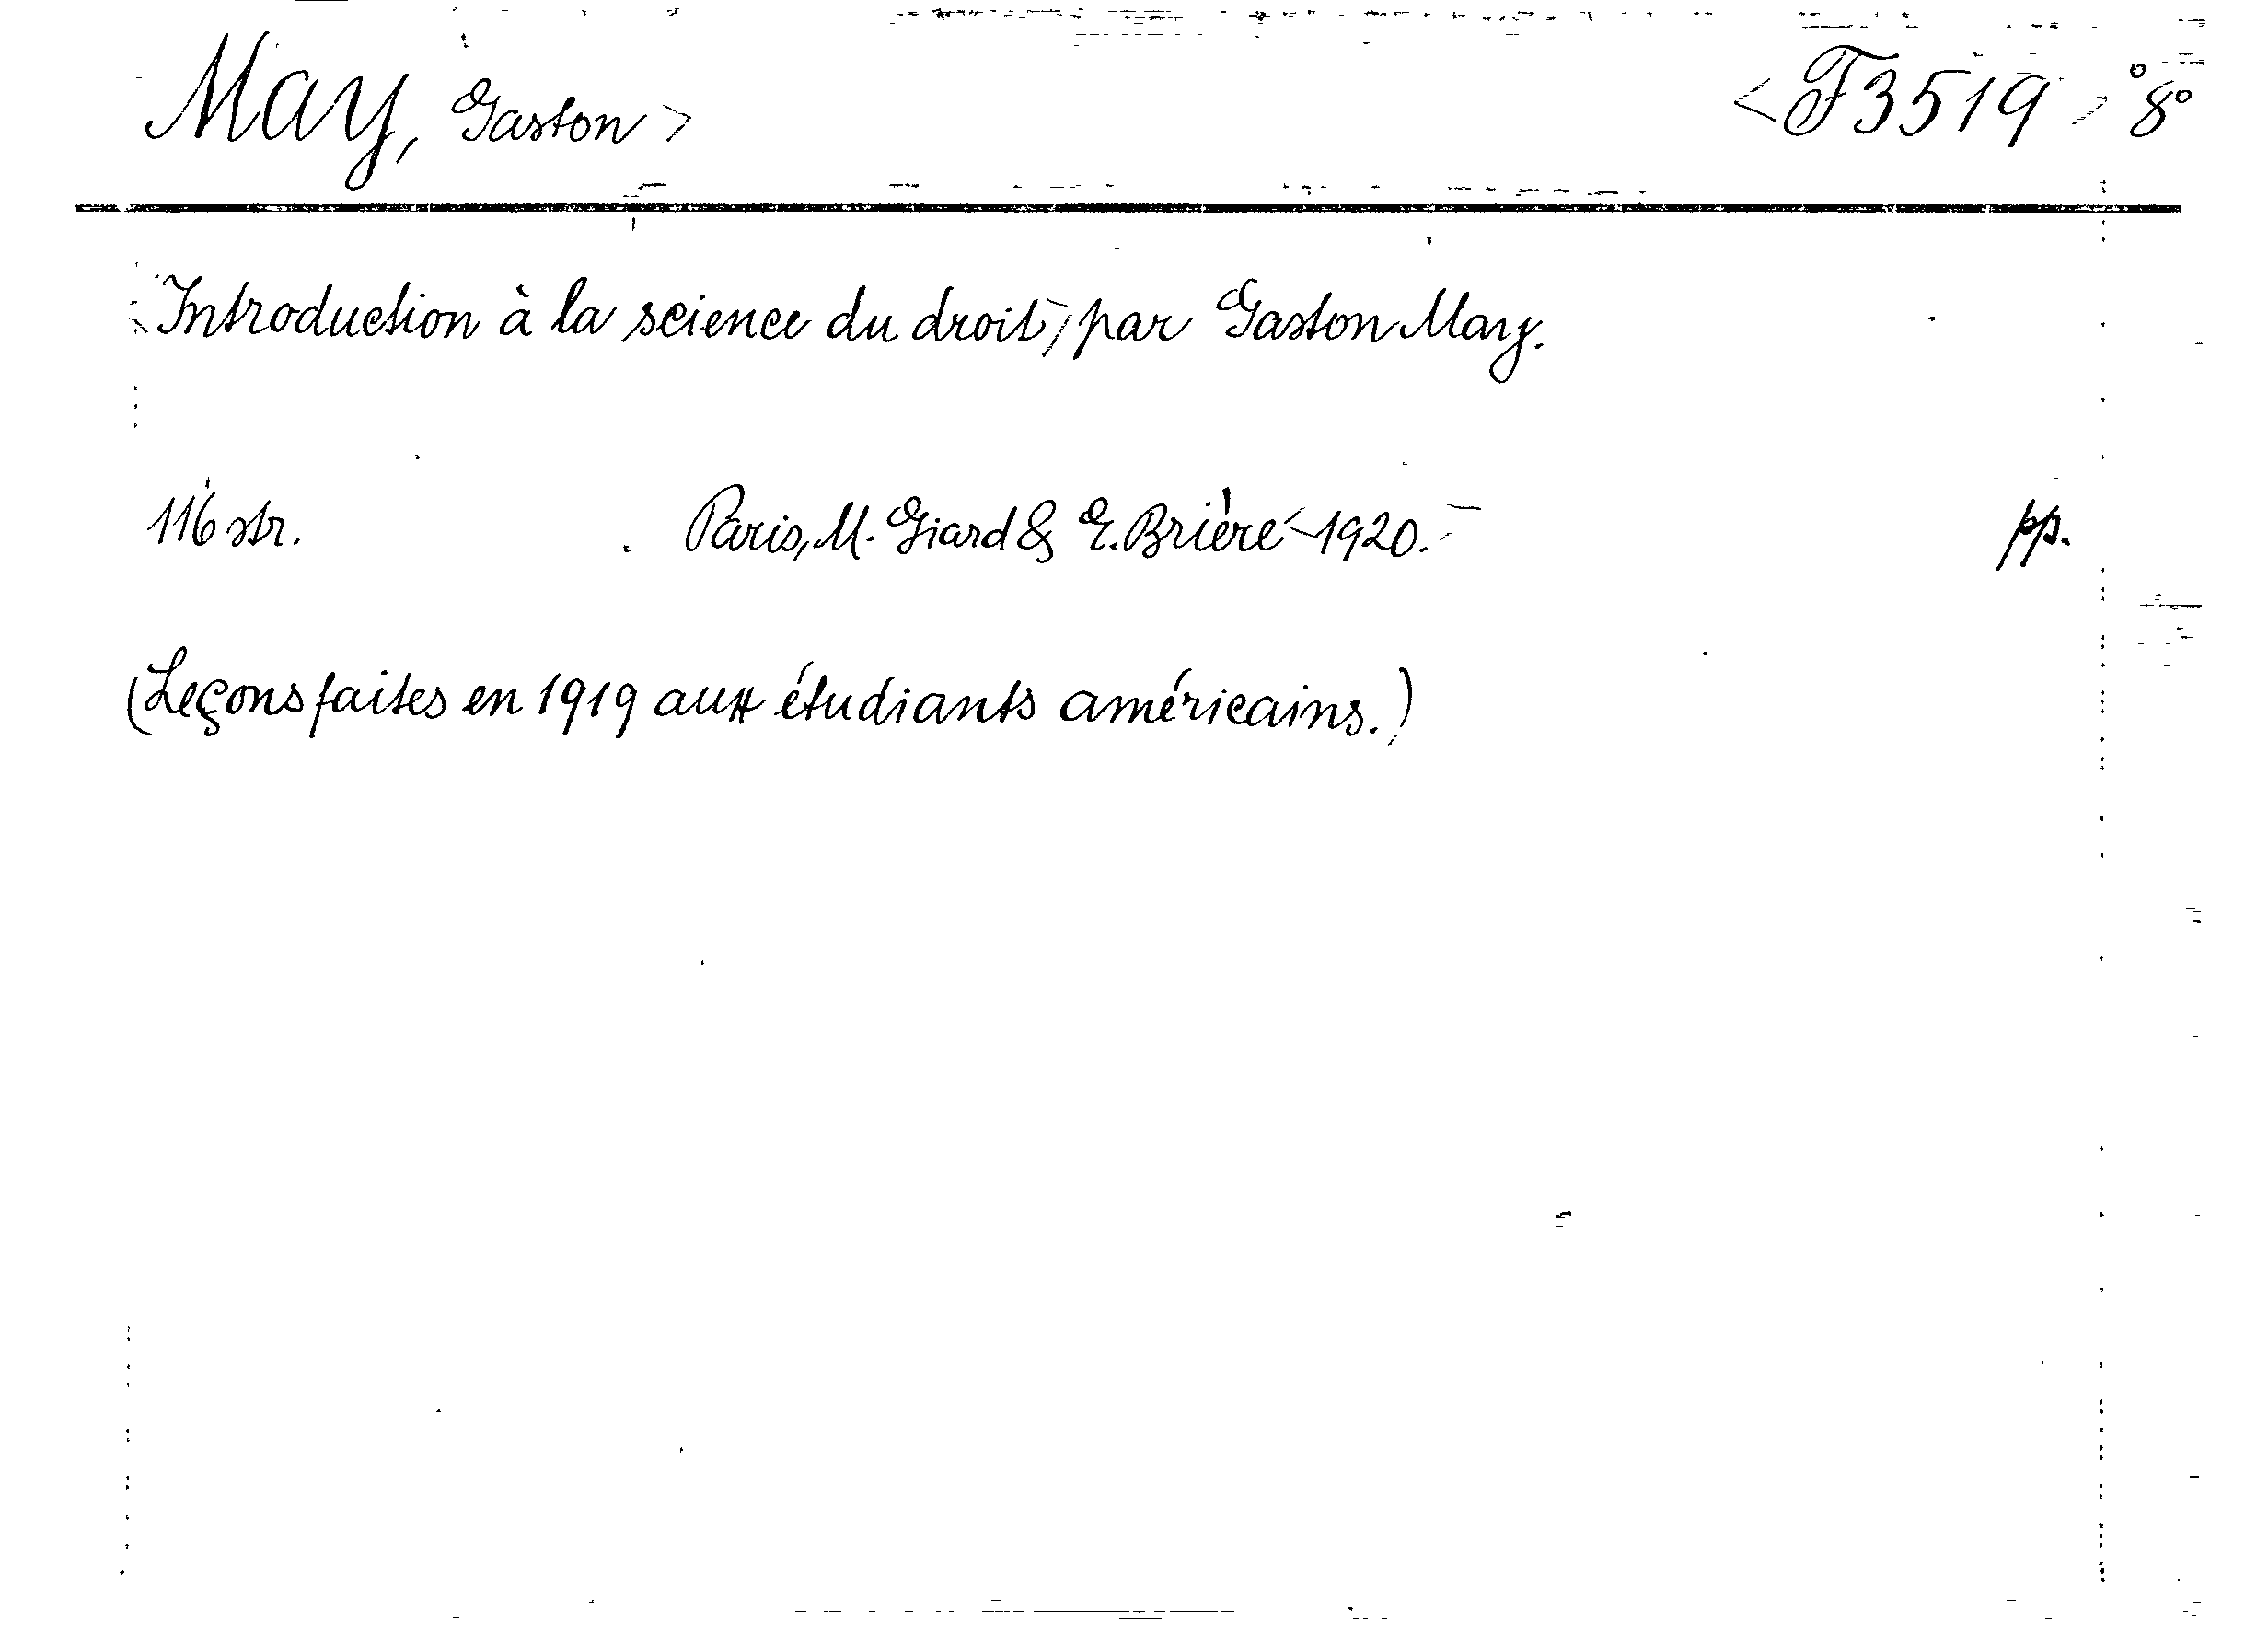 May, Gaston <F 3519> 8°
Introduction à la science du droit, par Gaston May.
116 str. Paris, M. Giard & E. Brière 1920. pp.
(Leçons faites en 1919 aux étudiants américains.)